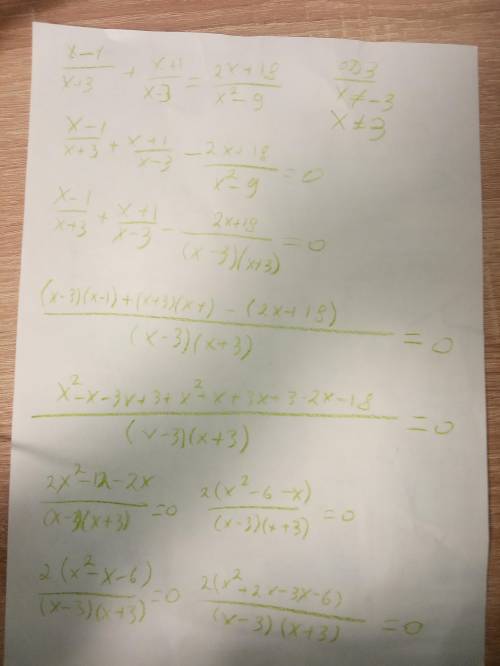 (x-1)/(x+3) + (x+1)/(x-3) = (2x+18)/(x²-9)
ОДЗ
x≠-3
x≠3
(x-1)/(x+3) + (x+1)/(x-3) - (2x+18)/(x²-9) = 0
(x-1)/(x+3) + (x+1)/(x-3) - (2x+18)/((x-3)(x+3)) = 0
((x-3)(x-1)+(x+3)(x+1) - (2x+18))/((x-3)(x+3)) = 0
(x²-x-3x+3+x²+x+3x+3-2x-18)/((x-3)(x+3)) = 0
(2x²-12-2x)/((x-3)(x+3)) = 0 (2(x²-6-x))/((x-3)(x+3)) = 0
(2(x²-x-6))/((x-3)(x+3)) = 0 (2(x²+2x-3x-6))/((x-3)(x+3)) = 0